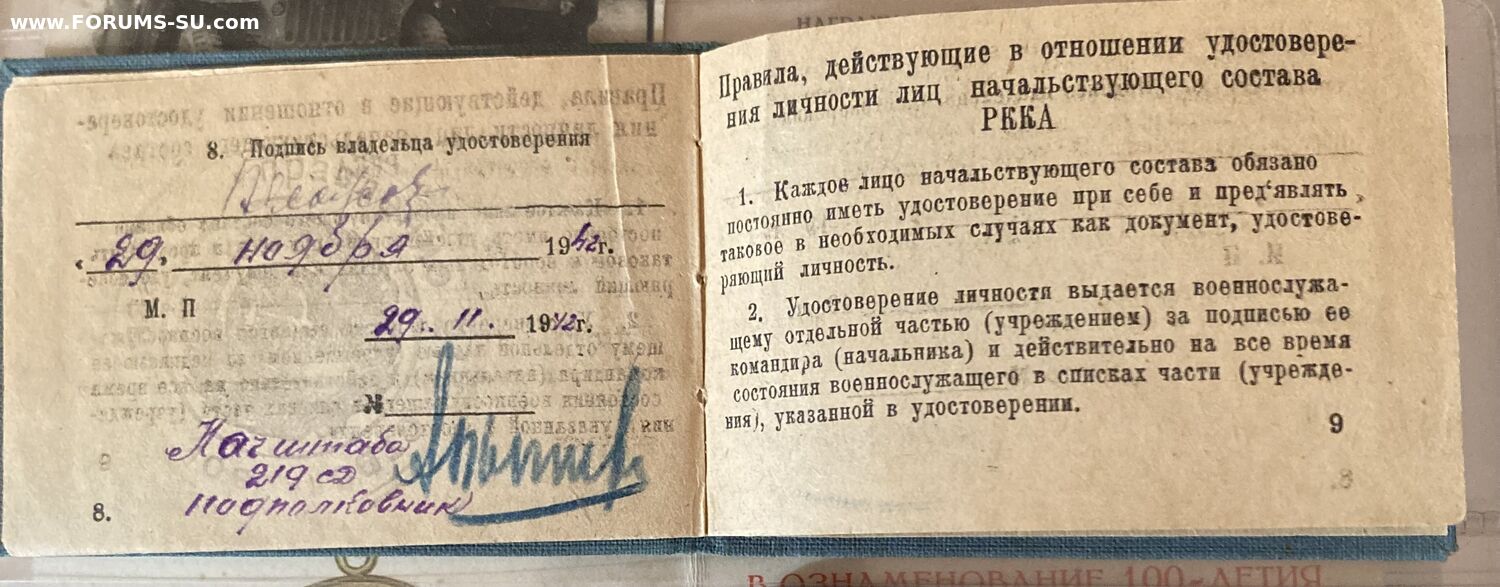 www.FORUMS-SU.com
8. Подпись владельца удостоверения
„29" ноября 1942г.
М. П
29. 11. 1942г.
№
Начштаба
219 сд
подполковник
8.
НАГРА
Правила, действующие в отношении удостовере-
ния личности лиц начальствующего состава
РККА
1. Каждое лицо начальствующего состава обязано
постоянно иметь удостоверение при себе и пред‘являть
таковое в необходимых случаях как документ, удостове-
ряющий личность.
2. Удостоверение личности выдается военнослужа-
щему отдельной частью (учреждением) за подписью ее
командира (начальника) и действительно на все время
состояния военнослужащего в списках части (учрежде-
ния), указанной в удостоверении.
9
В ОЗНАМЕНОВАНИЕ 100-ЛЕТИЯ